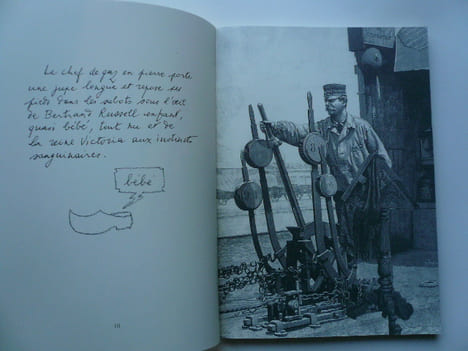 Le chef de gaz en pierre porte
une jupe longue et repose ses
pieds dans les sabots sous l'œil
de Bertrand Russell enfant,
quasi bébé, tout nu et de
la reine Victoria aux instincts
sanguinaires.
bébé